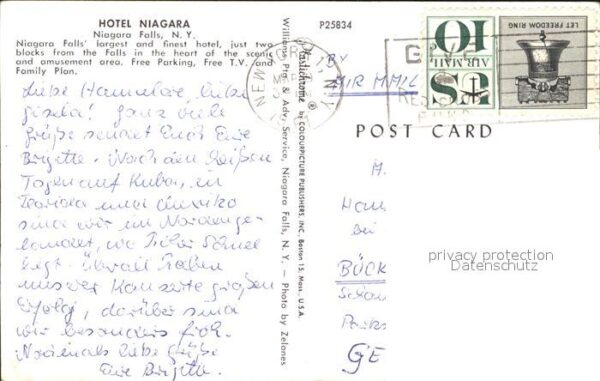 HOTEL NIAGARA
Niagara Falls, N. Y.
Niagara Falls' largest and finest hotel, just two
blocks from the Falls in the heart of the scenic
and amusement area. Free Parking, Free T.V. and
Family Plan.
Liebe Hannelore, liebe
Gisela! Ganz viele
Grüße sendet Euch Eure
Brigitte. Nach den heißen
Tagen auf Kuba, in
Florida und Mexiko
sind wir im Norden ge-
landet, wo Schnee
liegt. Überall haben
unsere Konzerte großen
Erfolg, darüber sind
wir besonders froh.
Nochmals liebe Grüße
Eure Brigitte.
Williams Ptg. & Adv. Service, Niagara Falls, N. Y. — Photo by Zelones
Plastichrome ® by COLOURPICTURE PUBLISHERS, INC. Boston 15, Mass., U.S.A.
P25834
BY
AIR MAIL
NEW
N.Y.
GIVE
FUND
US
AIR MAIL
10
LET FREEDOM RING
POST CARD
bei
BÖCK
GE
privacy protection
Datenschutz